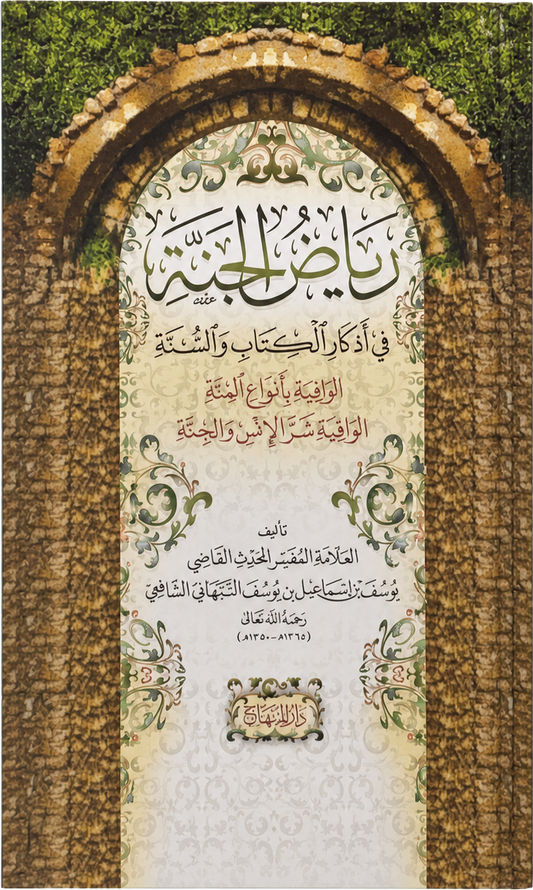 رِيَاضُ الجَنَّةِ
فِي أَذْكَارِ ٱلْكِتَابِ وَٱلسُّنَّةِ
الوَافِيَةِ بِأَنْوَاعِ المِنَّةِ
الوَاقِيَةِ شَرَّ الإِنْسِ وَالجِنَّةِ
تأليف
العَلّامَةِ المُفَسِّرِ المُحَدِّثِ القَاضِي
يُوسُفَ بْنِ إِسْمَاعِيل بن يُوسُفَ النَّبْهَانِيّ الشَّافِعِيّ
رَحِمَهُ اللهُ تَعَالَىٰ
(١٣٦٥هـ - ١٣٥٠هـ)
دَارُ المِنْهَاج